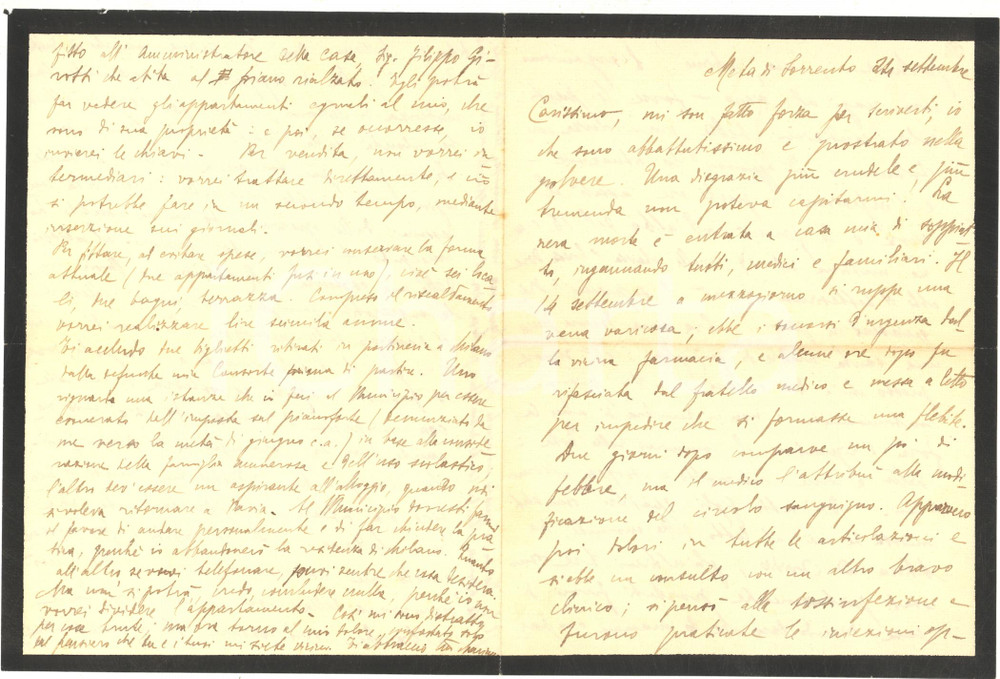 Meta di Sorrento 24 settembre
Carissimo, mi son fatto forza per scriverti, io
che sono abbattutissimo e prostrato nella
polvere. Una disgrazia più crudele e più
tremenda non poteva capitarmi. La
nera morte è entrata a casa mia di soppiat-
to, ingannando tutti, medici e familiari. Il
14 settembre a mezzogiorno si ruppe una
vena varicosa; ebbe i soccorsi d'urgenza dal
la vicina farmacia, e alcune ore dopo fu
rifasciata dal fratello medico e messa a letto
per impedire che si formasse una flebite.
Due giorni dopo comparve un po' di
febbre, ma il medico l'attribuì alla modi-
ficazione del circolo sanguigno. Apparvero
poi dolori in tutte le articolazioni e
si ebbe un consulto con un altro bravo
clinico; si pensò alla tossinfezione e
furono praticate le iniezioni op-
fitto all'Amministratore della casa, Sig. Filippo Gi-
rotti che abita al piano rialzato. Egli potrà
far vedere gli appartamenti eguali al mio, che
sono di sua proprietà: e poi, se occorresse, io
invierei le chiavi. Per vendita, non vorrei in-
termediari: vorrei trattare direttamente, e ciò
si potrebbe fare in un secondo tempo, mediante
inserzione sui giornali.
Per fittare, ad evitare spese, vorrei conservare la forma
attuale (due appartamenti fusi in uno), cioè sei loca-
li, due bagni, terrazza. Compreso il riscaldamento
vorrei realizzare lire seimila annue.
Ti accludo due biglietti ritirati in portineria a Milano
dalla defunta mia Consorte prima di partire. Uno
riguarda una istanza che io feci al Municipio per essere
esonerato dell'imposta sul pianoforte (denunziato da
me verso la metà di giugno c.a.) in base alla conside-
razione della famiglia numerosa e dell'uso scolastico;
l'altro dev'essere un aspirante all'alloggio, quando noi
si voleva ritornare a Pavia. Al Municipio dovresti farmi
il favore di andare personalmente e di far chiudere la pra-
tica, perché io abbandonerò la residenza di Milano. Quanto
all'altro, se vuoi telefonare, puoi sentire che cosa desidera.
Ma non si potrà, credo, concludere nulla, perché io non
vorrei dividere l'appartamento. Così mi sono distratto
per cose brutte; ma ora torno al mio dolore, confortato solo
dal pensiero che tu e i tuoi mi siete vicini. Ti abbraccio